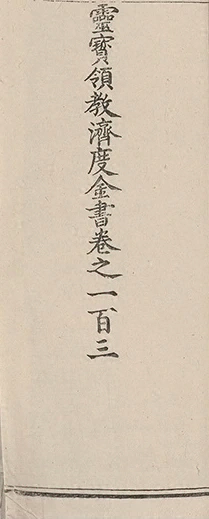 靈寳領教濟度金書卷之一百三